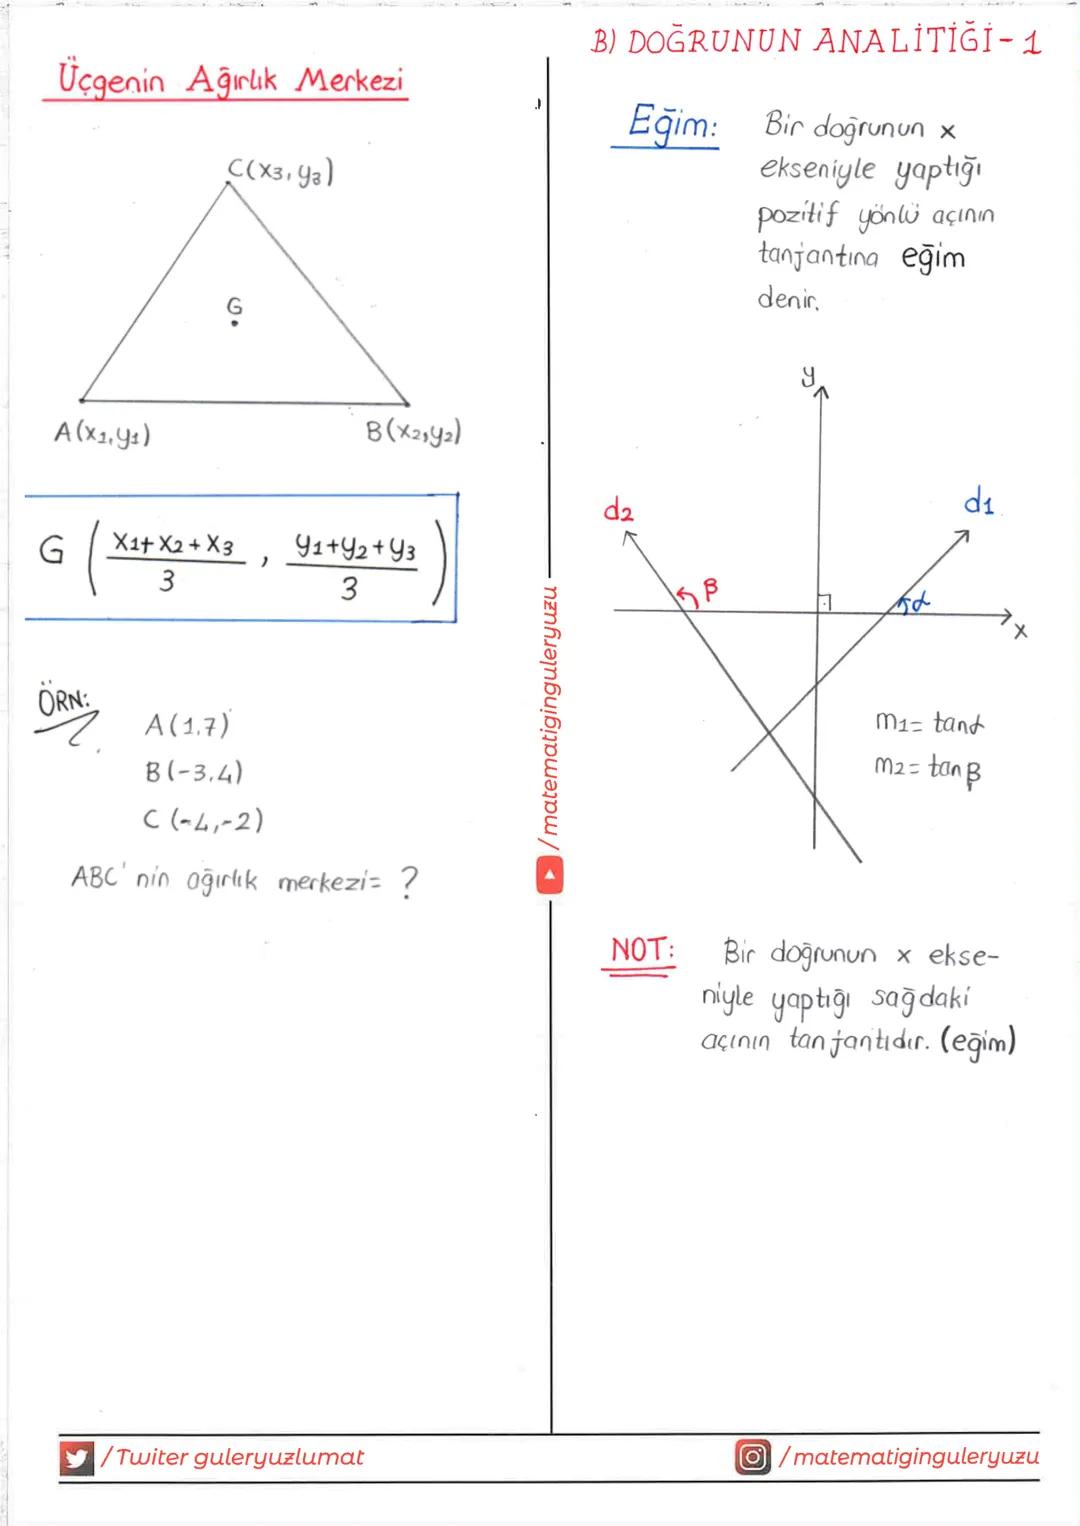 Üçgenin Ağırlık Merkezi
C(x3, y3)
G
A(x1,y1)
B(x2,y2)
G ( x1+x2+x3 / 3 , y1+y2+y3 / 3 )
ÖRN:
A(1,7)
B(-3,4)
C(-4,-2)
ABC'nin ağırlık merkezi= ?
/matematiginguleryuzu
B) DOĞRUNUN ANALİTİĞİ-1
Eğim: Bir doğrunun x
ekseniyle yaptığı
pozitif yönlü açının
tanjantına eğim
denir.
y
d2
d1
β
α
x
m1= tanα
m2= tanβ
NOT: Bir doğrunun x ekse-
niyle yaptığı sağdaki
açının tanjantıdır. (eğim)
/Twiter guleryuzlumat
/matematiginguleryuzu